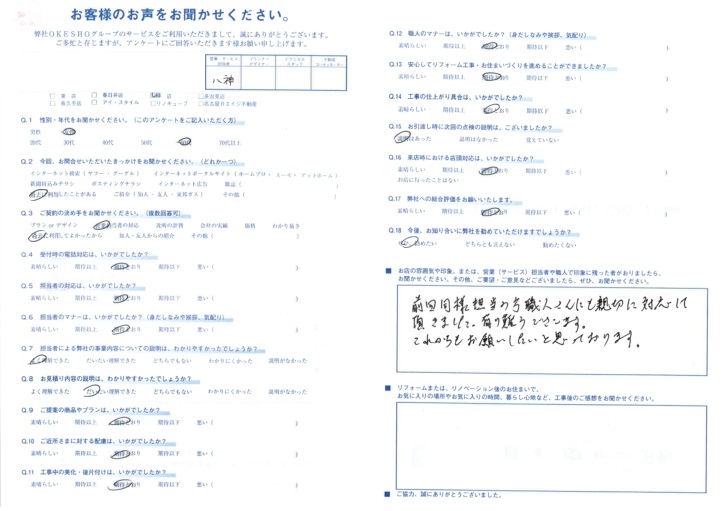 お客様のお声をお聞かせください。
弊社OKESHOグループのサービスをご利用いただきまして、誠にありがとうございます。
ご多忙と存じますが、アンケートにご回答いただきます様お願い申し上げます。
営業・サービス担当者
プランナー デザイナー
八神
東店 春日井店 店 多治見店
長久手店 アイ・スタイル リノキューブ 名古屋日エイジ不動産
Q.1 性別・年代をお聞かせください。(このアンケートをご記入いただく方)
男性 女性
20代 30代 40代 50代 60代 70代以上
Q.2 今回、お問合せいただいたきっかけをお聞かせください。(どれか一つ)
インターネット検索(ヤフー・グーグル) インターネットポータルサイト(ホームプロ・エーモ・アットホーム)
新聞折込みチラシ ポスティングチラシ インターネット広告 雑誌( )
過去に利用したことがある ご紹介(知人・友人・東邦ガス) その他( )
Q.3 ご契約の決め手をお聞かせください。(複数回答可)
プラン or デザイン 営業担当者の対応 説明の詳細 会社の実績 価格 わかり易さ
過去に利用してよかったから 知人・友人からの紹介 その他( )
Q.4 受付時の電話対応は、いかがでしたか?
素晴らしい 期待以上 期待どおり 期待以下 悪い( )
Q.5 担当者の対応は、いかがでしたか?
素晴らしい 期待以上 期待どおり 期待以下 悪い( )
Q.6 担当者のマナーは、いかがでしたか?(身だしなみや挨拶、気配り)
素晴らしい 期待以上 期待どおり 期待以下 悪い( )
Q.7 担当者による弊社の事業内容についての説明は、わかりやすかったでしょうか?
よく理解できた だいたい理解できた どちらでもない わかりにくかった 説明がなかった
Q.8 お見積り内容の説明は、わかりやすかったでしょうか?
よく理解できた だいたい理解できた どちらでもない わかりにくかった 説明がなかった
Q.9 ご提案の商品やプランは、いかがでしたか?
素晴らしい 期待以上 期待どおり 期待以下 悪い( )
Q.10 ご近所さまに対する配慮は、いかがでしたか?
素晴らしい 期待以上 期待どおり 期待以下 悪い( )
Q.11 工事中の美化・後片付けは、いかがでしたか?
素晴らしい 期待以上 期待どおり 期待以下 悪い( )
Q.12 職人のマナーは、いかがでしたか?(身だしなみや挨拶、気配り)
素晴らしい 期待以上 期待どおり 期待以下 悪い( )
Q.13 安心してリフォーム工事・お住まいづくりを進めることができましたか?
素晴らしい 期待以上 期待どおり 期待以下 悪い( )
Q.14 工事の仕上がり具合は、いかがでしたか?
素晴らしい 期待以上 期待どおり 期待以下 悪い( )
Q.15 お引渡し時に次回の点検の説明は、ございましたか?
説明はあった 説明はなかった 覚えていない
Q.16 来店時における店頭対応は、いかがでしたか?
素晴らしい 期待以上 期待どおり 期待以下 悪い( )
お店に行ったことはない
Q.17 弊社への総合評価をお願いいたします。
素晴らしい 期待以上 期待どおり 期待以下 悪い( )
Q.18 今後、お知り合いに弊社を勧めていただけますでしょうか?
ぜひ、勧めたい どちらとも言えない 勧めたくない
■ お店の雰囲気や印象、または、営業(サービス)担当者や職人で印象に残った者がおりましたら、
お聞かせください。その他、ご要望・ご意見などございましたら、ぜひ、お聞かせください。
前回同様担当の方職人さんにも親切に対応して
頂きました。有り難うございます。
これからもお願いしたいと思っております。
■ リフォームまたは、リノベーション後のお住まいで、
お気に入りの場所やお気に入りの時間、暮らし心地など、工事後のご感想をお聞かせください。
■ ご協力、誠にありがとうございました。